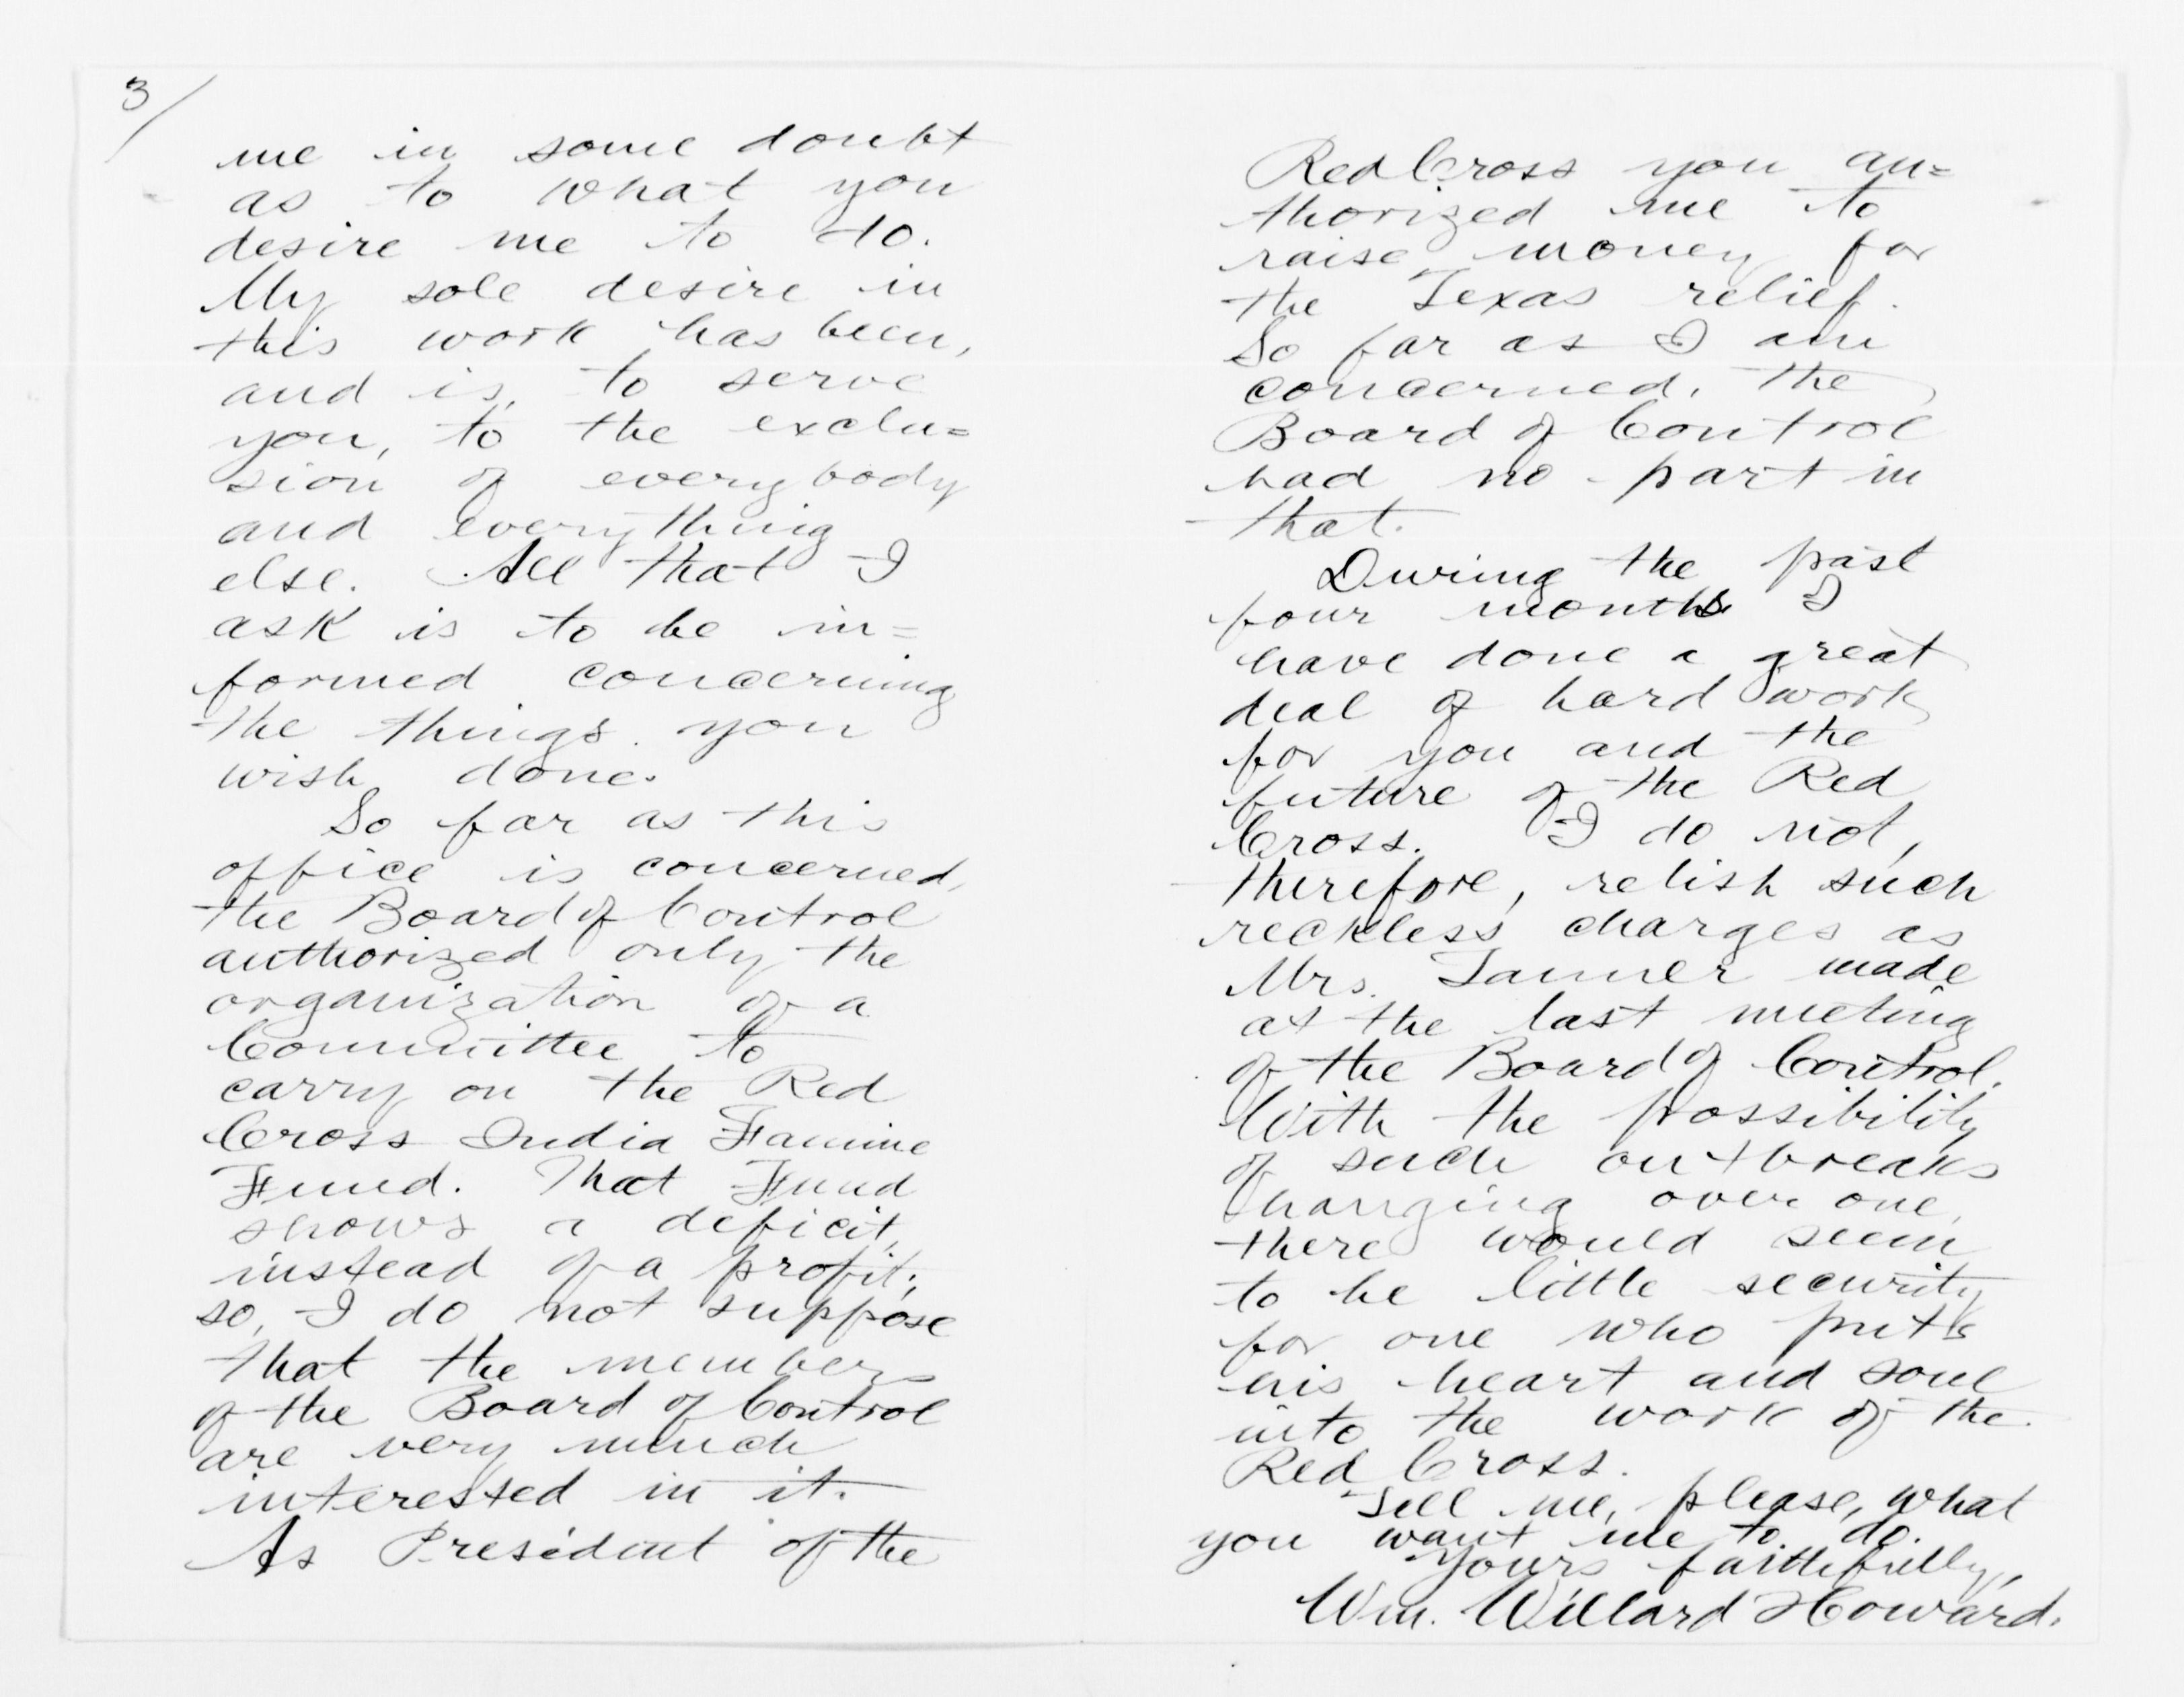 3/
me in some doubt
as to what you
desire me to do.
My sole desire in
this work has been,
and is, to serve
you, to the exclu=
sion of everybody
and everything
else. All that I
ask is to be in=
formed concerning
the things you
wish done.
So far as this
office is concerned,
the Board of Control
authorized only the
organization of a
Committee to
carry on the Red
Cross India Famine
Fund. That Fund
shows a deficit,
instead of a profit;
so, I do not suppose
that the members
of the Board of Control
are very much
interested in it.
As President of the
Red Cross you au=
thorized me to
raise money for
the Texas relief.
So far as I am
concerned, the
Board of Control
had no part in
that.
During the past
four months I
have done a great
deal of hard work
for you and the
future of the Red
Cross. I do not,
therefore, relish such
reckless charges as
Mrs. Tanner made
at the last meeting
of the Board of Control.
With the possibility
of such outbreaks
hanging over one,
there would seem
to be little security
for one who puts
his heart and soul
into the work of the
Red Cross.
Tell me, please, what
you want me to do.
Yours faithfully,
Wm. Willard Howard.